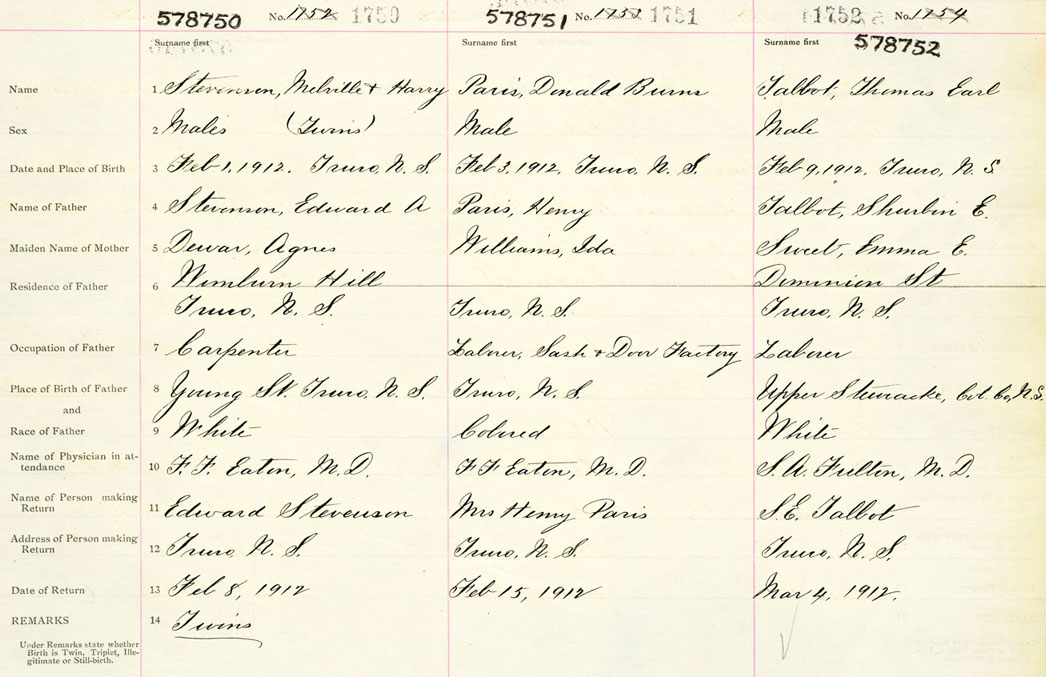 578750 No. 1752 1750 578751 No. 1753 1751 1752 No. 1754
Surname first Surname first Surname first 578752
Name 1 Stevenson, Melville + Harry Paris, Donald Burns Talbot, Thomas Earl
Sex 2 Males (Twins) Male Male
Date and Place of Birth 3 Feb 1, 1912. Truro, N. S. Feb 3, 1912. Truro, N. S. Feb 9, 1912. Truro, N. S
Name of Father 4 Stevenson, Edward A Paris, Henry Talbot, Shurbin E.
Maiden Name of Mother 5 Dewar, Agnes Williams, Ida Sweet, Emma E.
Residence of Father 6 Wimburn Hill Dominion St
Truro, N. S. Truro, N. S. Truro, N. S.
Occupation of Father 7 Carpenter Laborer, Sash + Door Factory Laborer
Place of Birth of Father 8 Young St. Truro, N. S. Truro, N. S. Upper Stewiacke, Col. Co, N. S.
and
Race of Father 9 White Colored White
Name of Physician in at-
tendance 10 F. F. Eaton, M. D. F F Eaton, M. D. S. A. Fulton, M. D.
Name of Person making
Return 11 Edward Stevenson Mrs Henry Paris S. E. Talbot
Address of Person making
Return 12 Truro, N. S. Truro, N. S. Truro, N. S.
Date of Return 13 Feb 8, 1912 Feb 15, 1912 Mar 4, 1912.
REMARKS 14 Twins
Under Remarks state whether
Birth is Twin, Triplet, Ille-
gitimate or Still-birth.